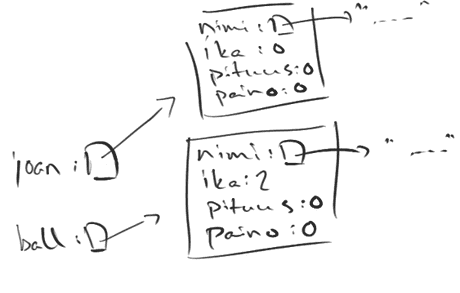 nimi: → "----"
ika: 0
pituus: 0
paino: 0
joan:
nimi: → "----"
ika: 2
pituus: 0
ball:
paino: 0